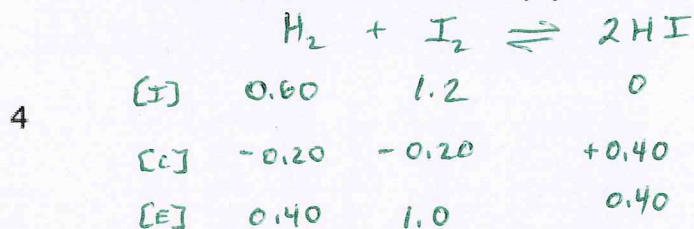 H₂ + I₂ ⇌ 2HI
4
[I] 0.60 1.2 0
[C] -0.20 -0.20 +0.40
[E] 0.40 1.0 0.40